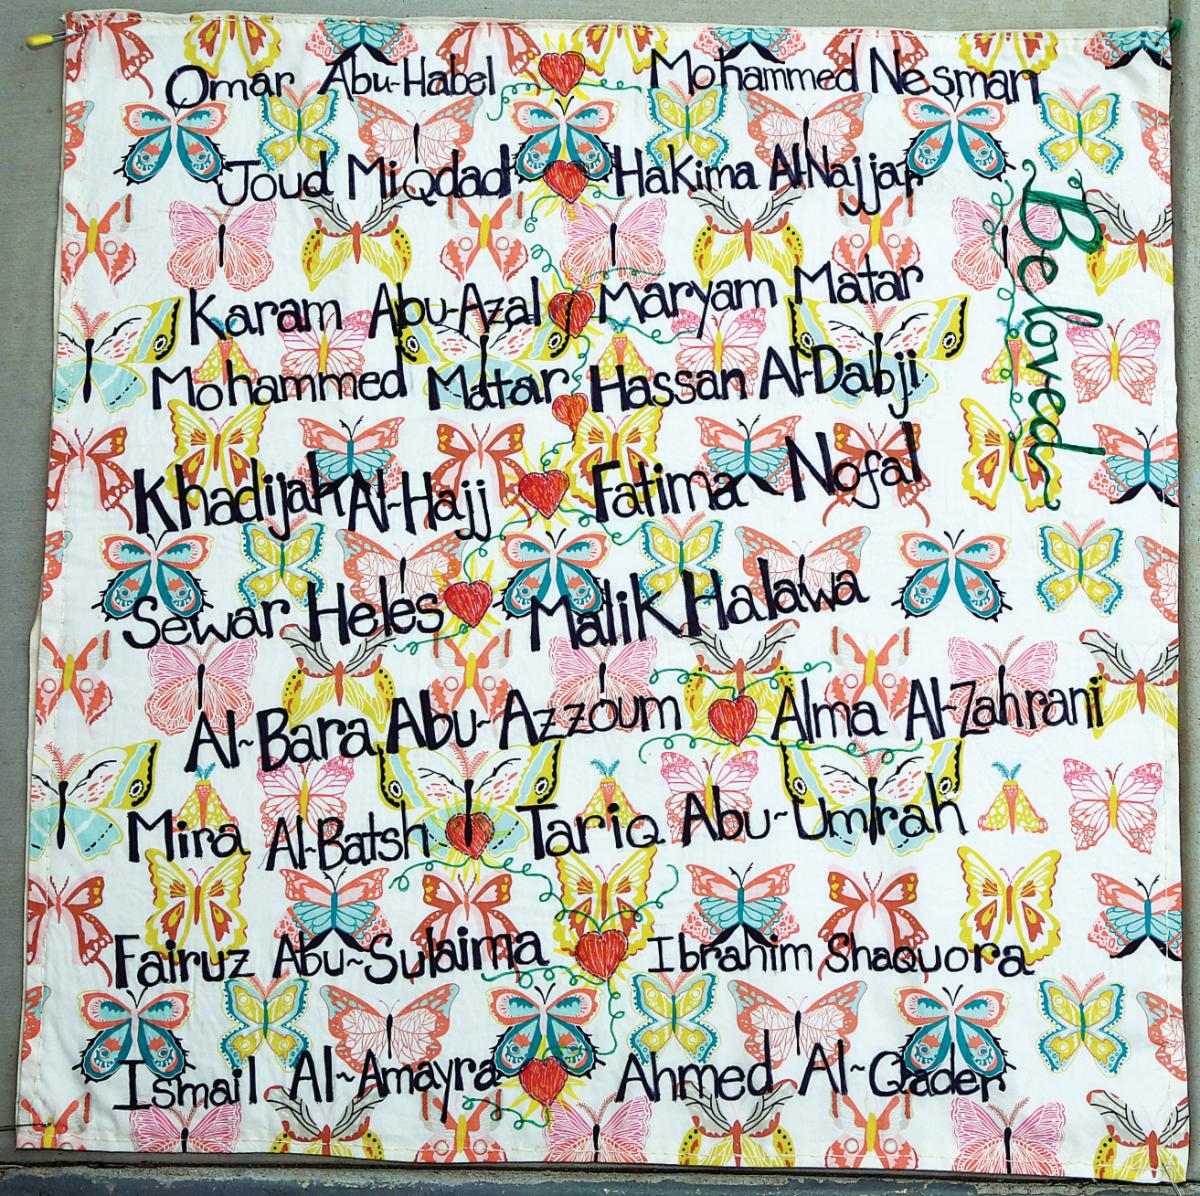 Omar Abu-Habel Mohammed Nesman
Joud Miqdad Hakima Al-Najjar
Karam Abu-Azal Maryam Matar
Mohammed Matar Hassan Al-Dabji
Khadijah Al-Hajj Fatima Nofal
Sewar Heles Malik Halawa
Al-Bara Abu-Azzoum Alma Al-Zahrani
Mira Al-Batsh Tariq Abu-Umrah
Fairuz Abu-Sulaima Ibrahim Shaquora
Ismail Al-Amayra Ahmed Al-Qader
Beloved